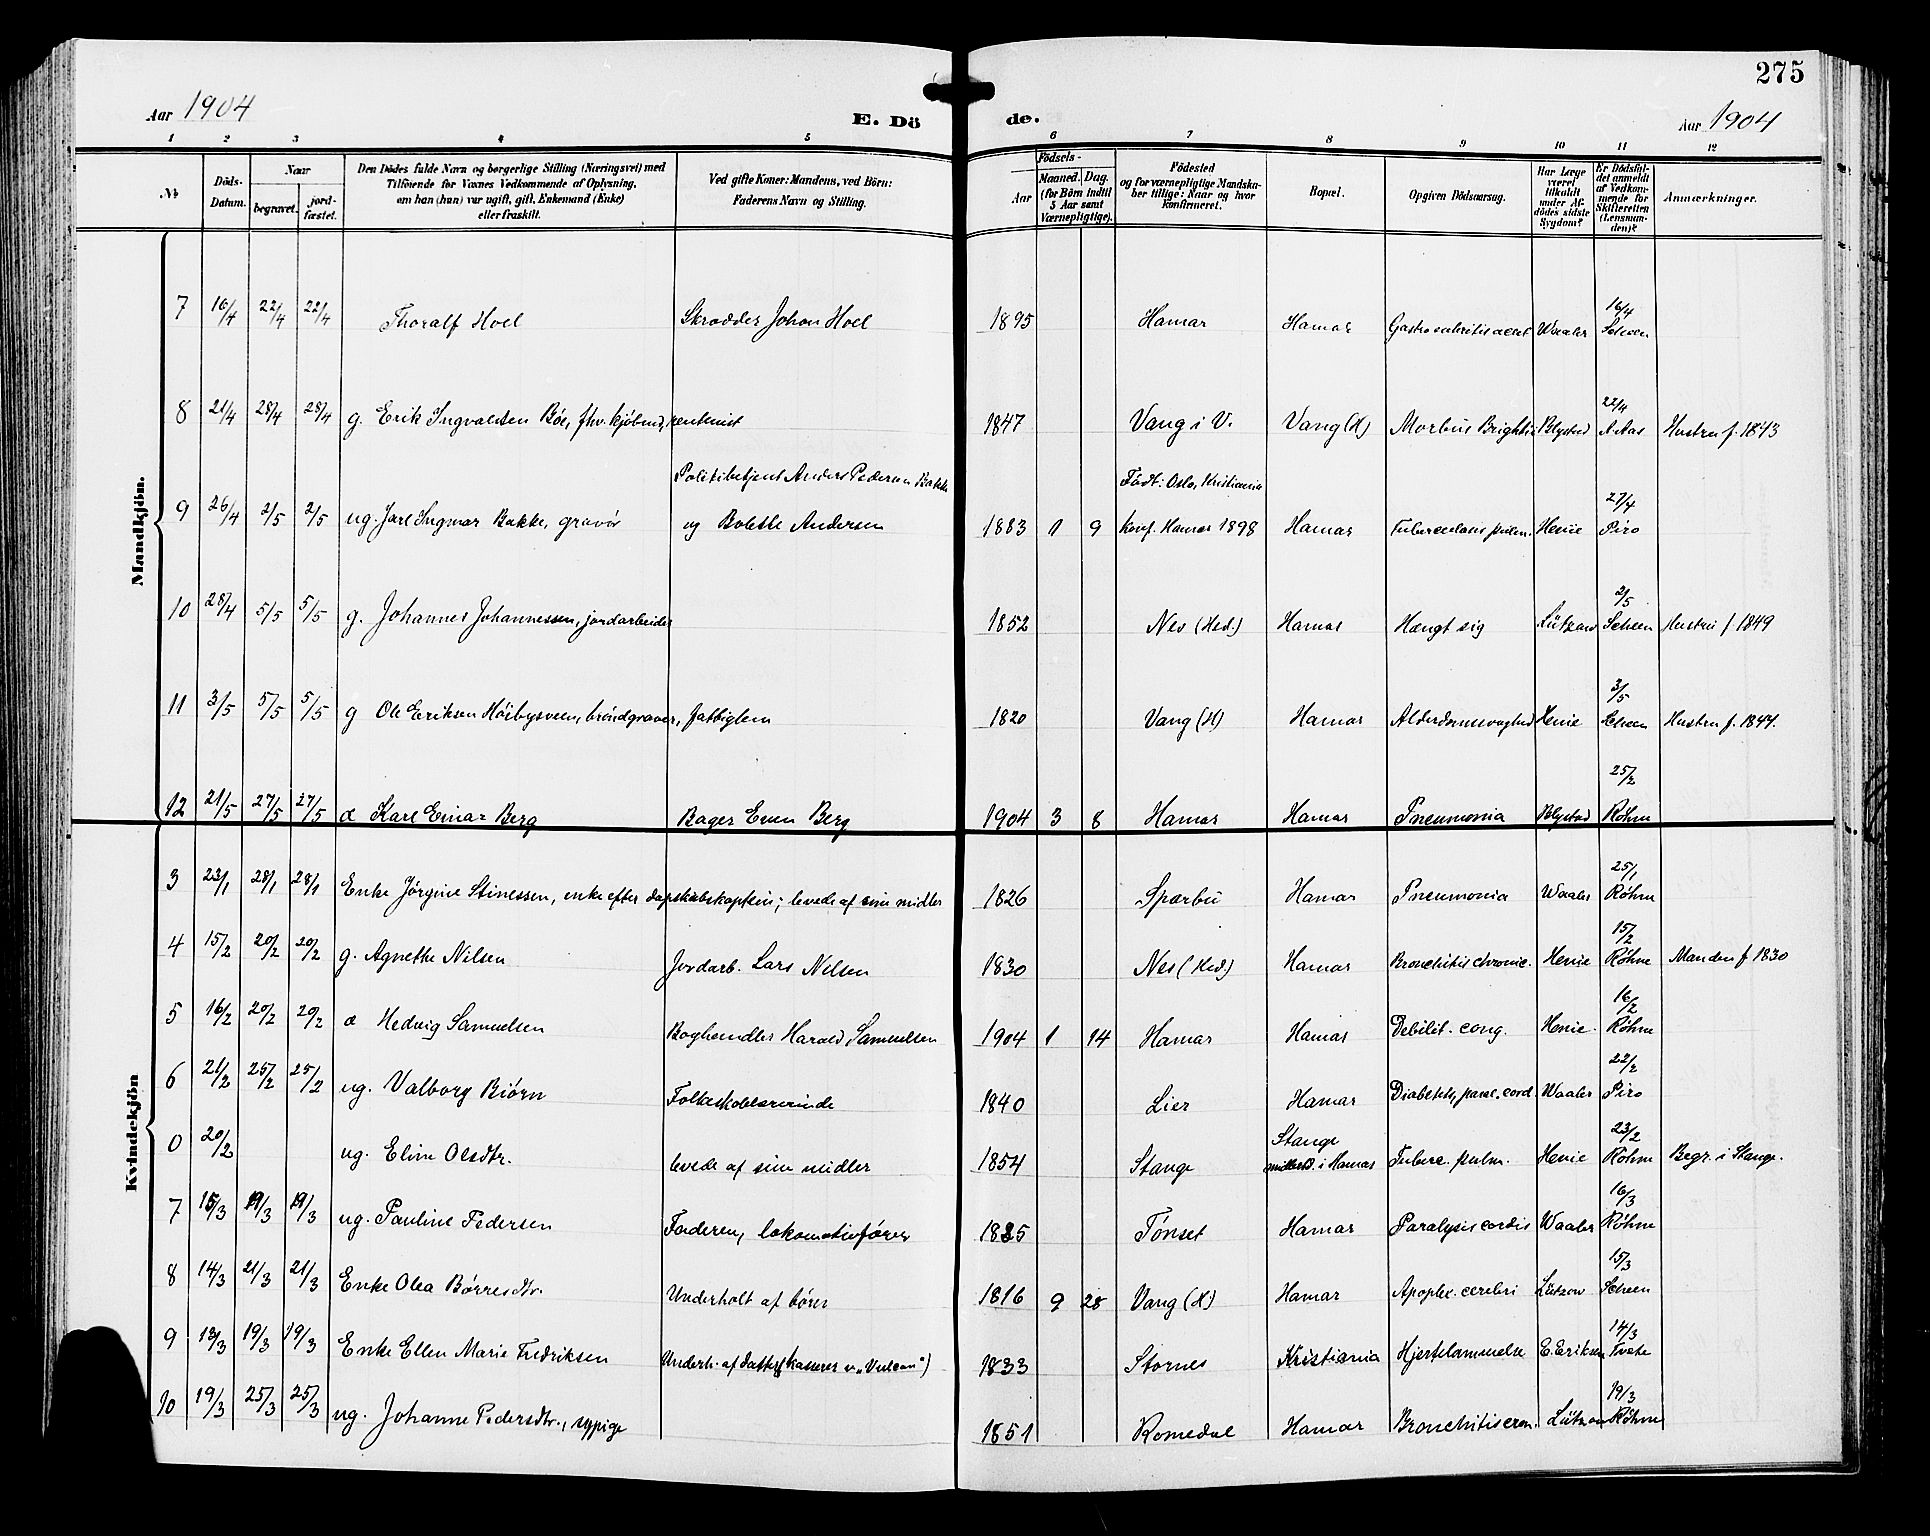 275
Aar 1904
E. Dö
de.
Aar 1904
1 2 3 4 5 6 7 8 9 10 11 12
No
Döds-Datum.
Naar
begravet.
jord-fæstet.
Den Dödes fulde Navn og borgerlige Stilling (Næringsvei) med
Tilföiende for Voxnes Vedkommende af Oplysning,
om han (hun) var ugift, gift, Enkemand (Enke)
eller fraskilt.
Ved gifte Koner: Mandens, ved Börn:
Faderens Navn og Stilling.
Födsels-
Aar
Maaned. Dag.
(for Börn indtil
5 Aar samt
Værnepligtige).
Födested
og for værnepligtige Mandska-
ber tillige: Naar og hvor
konfirmeret.
Bopæl.
Opgiven Dödsaarsag.
Har Læge
været
tilkaldt
under Af-
dödes sidste
Sygdom?
Er Dödsfal-
det anmeldt
af Vedkom-
mende for
Skifteretten
(Lensman-
den)?
Anmærkninger.
Mandkjön.
7 16/4 22/4 22/4 Thoralf Hoel Skrædder Johan Hoel 1895 Hamar Hamar Gastroenteritis acut Waaler 16/4 Scheen
8 21/4 28/4 28/4 g. Erik Ingvaldsen Böe, fhv. kjöbmd, rentenist 1847 Vang i V. Vang (H) Morbus Brightii Blystad 22/4 A. Aas Hustru f. 1843
9 26/4 2/5 2/5 ug. Jarl Ingmar Bakke, gravör Politibetjent Anders Pedersen Bakke
og Bolette Andersen 1883 1 9 Födt: Oslo, Kristiania
konf. Hamar 1898 Hamar Tuberculosis pulm. Henie 27/4 Piro
10 28/4 5/5 5/5 g. Johannes Johannessen, jordarbeider 1852 Nes (Hed.) Hamar Hængt sig Lützow 2/5 Scheen Hustru f 1849
11 3/5 5/5 5/5 g Ole Eriksen Höibysveen, bröndgraver, fattiglem 1820 Vang (H) Hamar Alderdomssvaghed Henie 3/5 Scheen Hustru f. 1847.
12 21/5 27/5 27/5 æ Karl Einar Berg Bager Even Berg 1904 3 8 Hamar Hamar Pneumonia Blystad 25/2 Röhm
Kvindekjön
3 23/1 28/1 28/1 Enke Jørgine Stinessen, enke efter dapskibskaptein; levede af sine midler 1826 Sparbu Hamar Pneumonia Waaler 25/1 Röhm
4 15/2 20/2 20/2 g. Agnethe Nilsen Jordarb. Lars Nilsen 1830 Nes (Hed.) Hamar Bronchitis chronic. Henie 15/2 Röhm Manden f 1830
5 16/2 20/2 20/2 æ Hedvig Samuelsen Boghandler Harald Samuelsen 1904 1 14 Hamar Hamar Debilit. cong. Henie. 16/2 Röhm
6 21/2 25/2 25/2 ug. Valborg Biørn Folkeskolelærerinde 1840 Lier Hamar Diabetes, paral. cord. Waaler 22/2 Piro
0 20/2 ug. Eline Olsdtr. levede af sine midler 1854 Stange Stange
i Hamar Tuberc. pulm. Henie 23/2 Röhm Begr. i Stange.
7 15/3 19/3 19/3 ug. Pauline Pedersen Faderen, lokomotivfører Tønset Hamar Paralysis cordis Waaler 16/3 Röhm
8 14/3 21/3 21/3 Enke Olea Børresdtr. Underholt af börn 1816 9 28 Vang (H) Hamar Apoplex. cerebri Lützow 15/3 Scheen
9 13/3 19/3 19/3 Enke Ellen Marie Fredriksen Underh. af datter (kasserer v. "Vulcan") 1833 Stornes Kristiania Hjertelammelse E. Eriksen 14/3 Tvete
10 19/3 25/3 25/3 ug. Johanne Pedersdtr., sypige 1851 Romedal Hamar Bronchitis cron. Lützow 19/3 Röhm